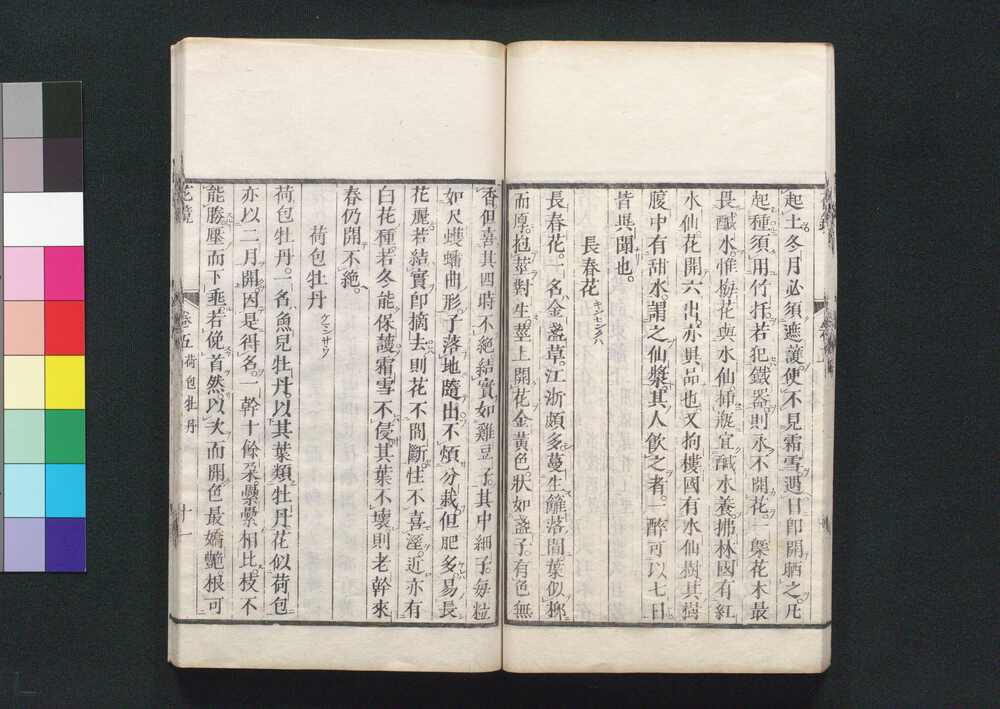 起土冬月必須遮護使不見霜雪遇日即開晒之凡
起種須用竹托若犯鐵器則永不開花一槩花木最
畏鹹水惟梅花與水仙插瓶宜鹹水養拂林國有紅
水仙花開六出亦異品也又拘樓國有水仙樹其樹
腹中有甜水謂之仙漿其人飲之者一醉可以七日
皆異聞也。
長春花 キンセンクハ
長春花。一名金盞草。江浙頗多蔓生籬落間葉似柳
而厚。抱莖對生莖上開花金黃色。狀如盞子有色無
香但喜其四時不絕結實如雞豆子。其中細子每粒
如尺蠖蟠曲形。子落地隨出不煩分栽但肥多易長
花麗若結實即摘去則花不間斷性不喜溼。近亦有
白花種。若冬能保護霜雪不侵其葉不壞則老幹來
春仍開不絕。
荷包牡丹 ケマンサウ
荷包牡丹。一名魚兒牡丹以其葉類牡丹花似荷包
亦以二月開因是得名。一幹十餘朶纍纍相比。枝不
能勝壓而下垂若俛首然以次而開色最嬌艷根可
花鏡 卷五 荷包牡丹 十一